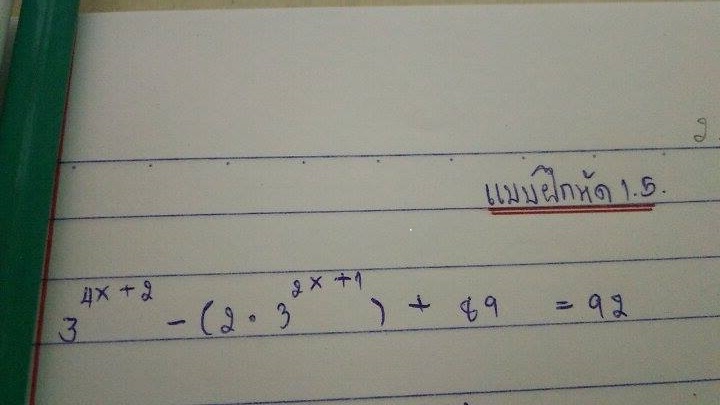 2
แบบฝึกหัด 1.5.
3^{4x+2} - (2 · 3^{2x+1}) + 89 = 92